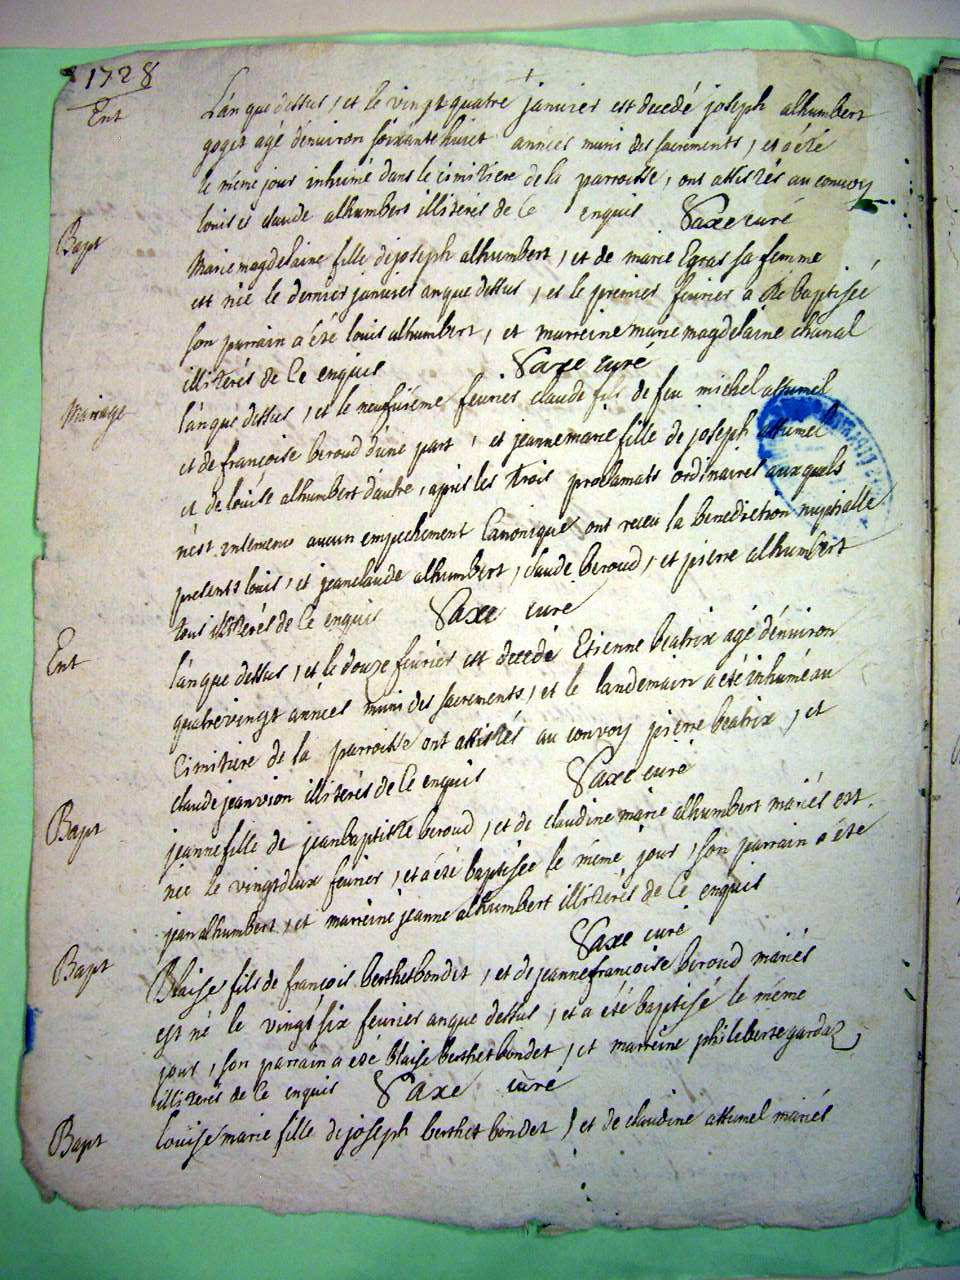 1728
Ent
L'an que dessus, et le vingt quatre janvier est decedé joseph alhumbert
goget agé dénviron soixante huict années muni des sacrements, et a été
le méme jour inhumé dans le cimitiere de la parroisse, ont assistés au convoy
louis et claude alhumbert illiterés de ce enquis Saxe curé
Bapt
Marie magdelaine fille de joseph alhumbert, et de marie Egras sa femme
est née le dernier janvier an que dessus, et le premier fevrier a été baptisée
son parrain a été louis alhumbert, et marreine marie magdelaine chanal
illiterés de ce enquis Saxe curé
Mariage
l'an que dessus, et le neufuiéme fevrier claude fils de feu michel assumel
et de françoise beroud d'une part, et jeanne marie fille de joseph assumel
et de loüise alhumbert d'autre, apres les trois proclamats ordinaires auxquels
n'est intervenu aucun empechement Canonique ont receu la benediction nuptialle
presents louis, et jean claude alhumbert, claude beroud, et pierre alhumbert
tous illiterés de ce enquis Saxe curé
Ent
l'an que dessus, et le douze fevrier est decedé Etienne beatrix agé dénviron
quatre vingt années muni des sacrements, et le landemain a été inhumé au
Cimitiere de la parroisse ont assistés au convoy pierre beatrix, et
claude jeanvion illiterés de ce enquis Saxe curé
Bapt
jeanne fille de jean baptiste beroud, et de claudine marie alhumbert mariés est
née le vingt deux fevrier, et a été baptisée le méme jour, son parrain a été
jean alhumbert, et marreine jeanne alhumbert illiterés de ce enquis
Saxe curé
Bapt
Blaise fils de françois berthet bondet, et de jeanne françoise beroud mariés
est né le vingt six fevrier an que dessus, et a été baptisé le méme
jour, son parrain a été blaise berthet bondet, et marreine philiberte gardaz,
illiterés de ce enquis Saxe curé
Bapt
loüise marie fille de joseph berthet bondet, et de claudine assumel mariés